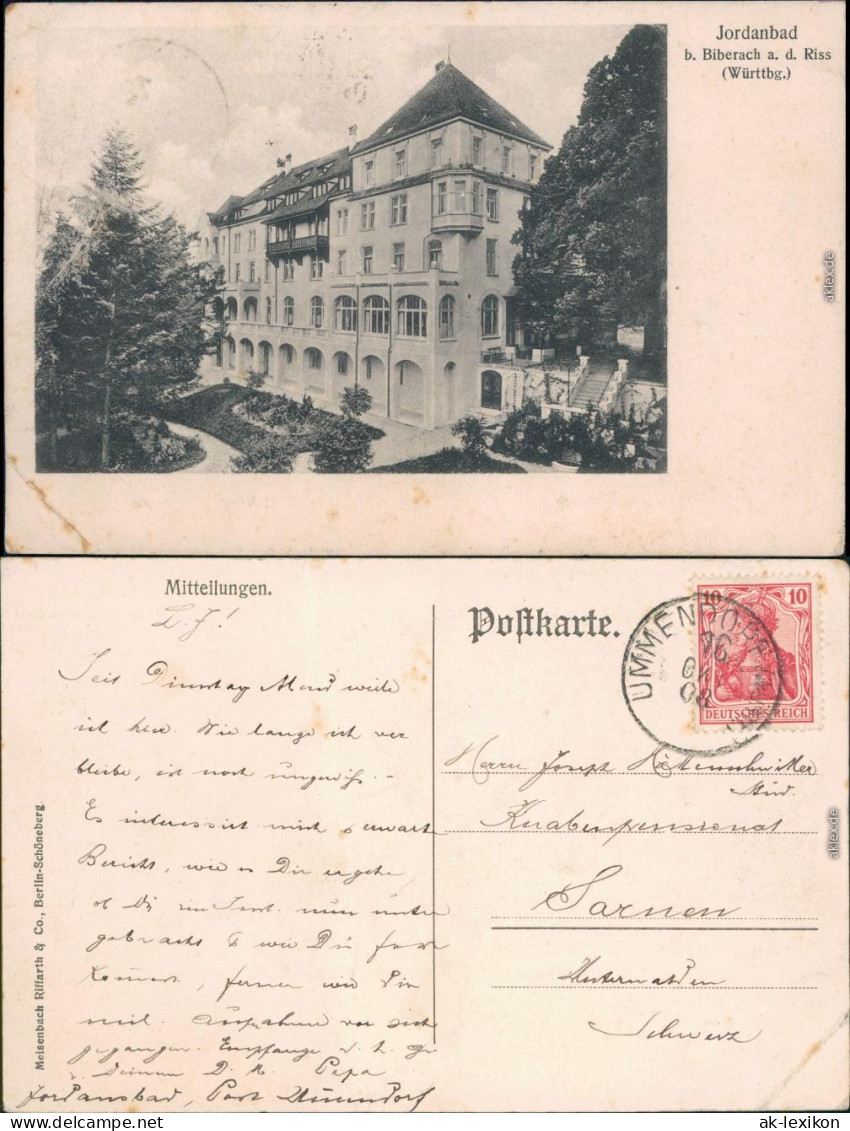 Jordanbad
b. Biberach a. d. Riss
(Württbg.)
aklex.de
Mitteilungen.
L. J!
Seit Dienstag Abend weile
ich hier. Wie lange ich ver
bleibe, ist noch ungewiß. -
Es interessirt mich & erwarte
Bericht, wie es Dir ergehe,
ob Du im Inst. nun unter
gebracht & wie Du fort
kommst, ferner wie die
mil. Aufnahme vor sich
gegangen. Empfange d. h. Gr.
v. Deinem D. l. Papa
Jordansbad, Post Ummendorf
Meisenbach Riffarth & Co., Berlin-Schöneberg
Postkarte.
UMMENDORF
16
08
10 10
DEUTSCHES REICH
Herrn Joseph
Stud.
Knabenpensionat
Sarnen
Unterwalden
Schweiz
aklex.de
ak-lexikon